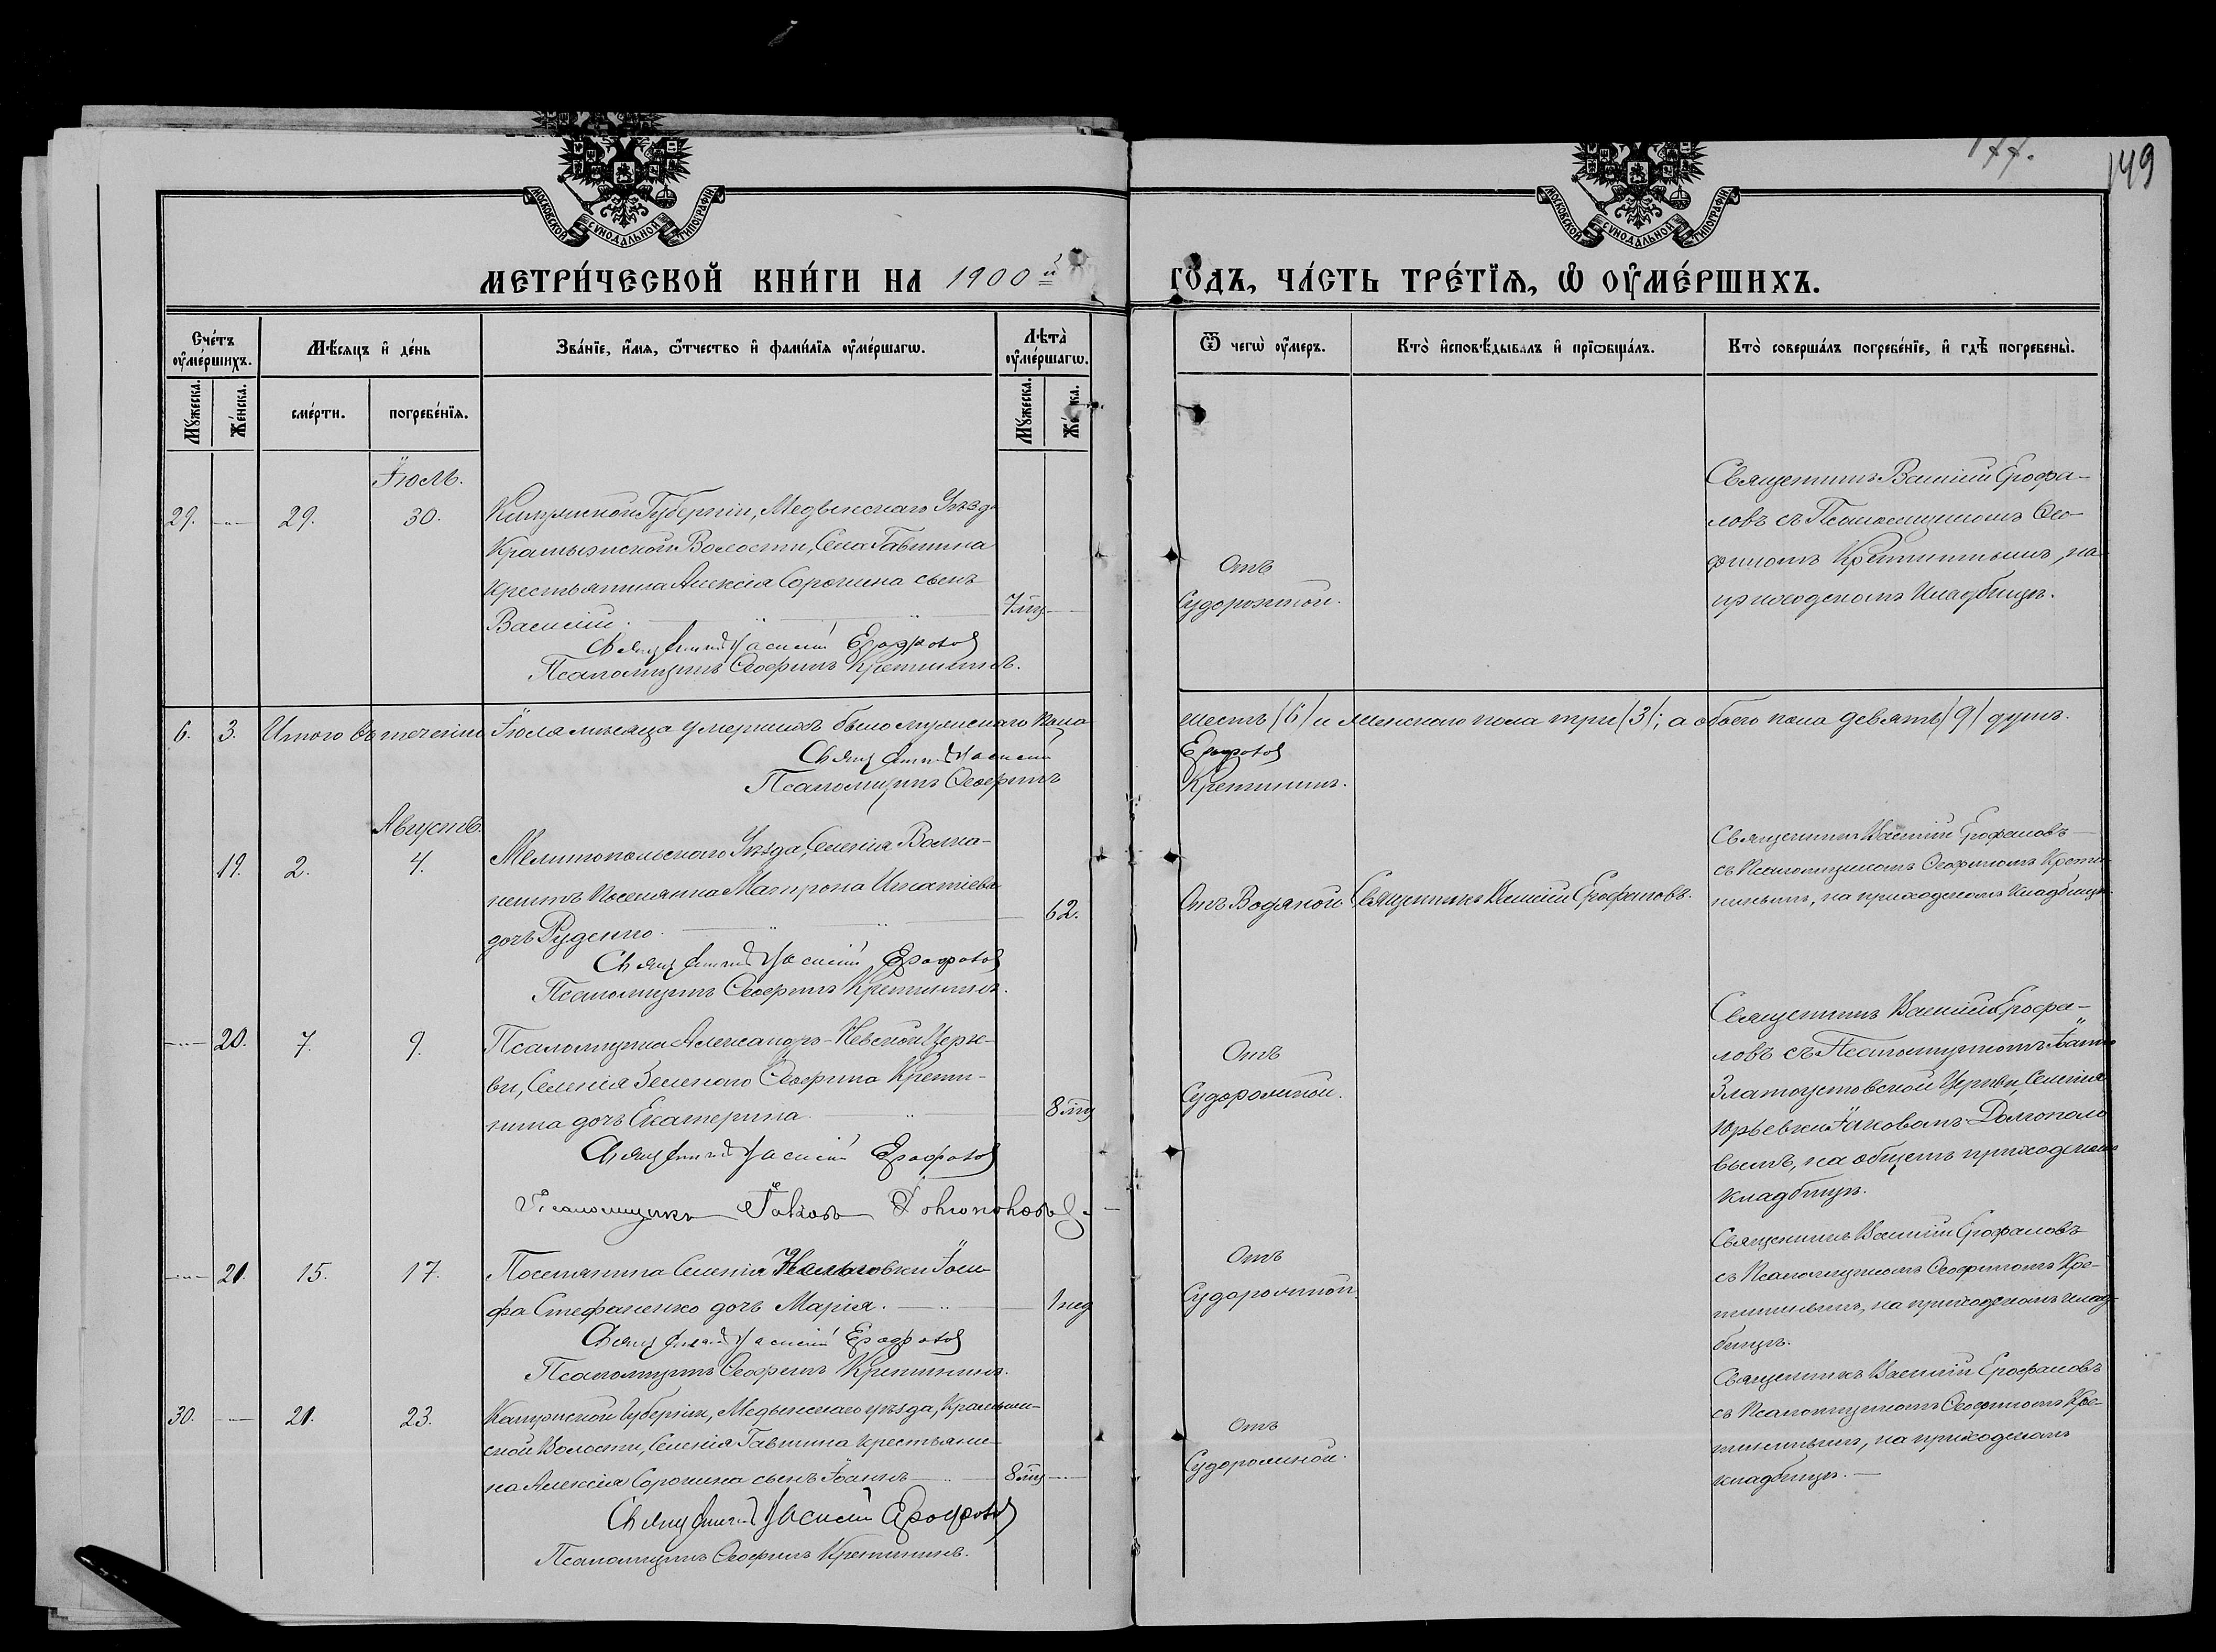 177.
149
МОСКОВСКОЙ СѴНОДАЛЬНОЙ ТИПОГРАФІИ
МОСКОВСКОЙ СѴНОДАЛЬНОЙ ТИПОГРАФІИ
МЕТРИ́ЧЕСКОЙ КНИ́ГИ НА 1900й
ГО́ДЪ, ЧА́СТЬ ТРЕ́ТІѦ, Ѡ ОУМЕ́РШИХЪ.
Сче́тъ оу҆ме́ршихъ.
Мѣ́сяцъ и҆ де́нь
Зва́нїе, и҆́мя, ѻ҆́тчество и҆ фами́лїя оу҆ме́ршагѡ.
Лѣ́та оу҆ме́ршагѡ.
Му́жеска.
Же́нска.
сме́рти.
погребе́нїя.
Му́жеска.
Ѿ чегѡ̀ оу҆́меръ.
Кто̀ и҆сповѣ́дывалъ и҆ прїѡбща́лъ.
Кто̀ соверша́лъ погребе́нїе, и҆ гдѣ̀ погребены̀.
Іюль.
29. 29. 30. Калужской Губерніи, Медынскаго Уѣзда
Волости, Села Гавшина
крестьянина Алексія Сорокина сынъ
Василій. 7 мц
Священникъ Василій Ерофаловъ
Псаломщикъ Ѳеофилъ Кретининъ.
Отъ
Судорожной.
Священникъ Василій Ерофа-
ловъ съ Псаломщикомъ Ѳео-
филомъ Кретининымъ, на
приходскомъ кладбищѣ.
6. 3. Итого въ теченіи Іюля мѣсяца умершихъ было мужескаго пола
шесть (6) и женскаго пола три (3); а обоего пола девять (9) душъ.
Священникъ Василій Ерофаловъ
Псаломщикъ Ѳеофилъ Кретининъ.
Августъ.
19. 2. 4. Мелитопольскаго Уѣзда, Селенія Волка-
нешть Поселянка Матрона Игнатіева
дочь Руденко. 62.
Священникъ Василій Ерофаловъ
Псаломщикъ Ѳеофилъ Кретининъ.
Отъ Водяной
Священникъ Василій Ерофаловъ.
Священникъ Василій Ерофаловъ
съ Псаломщикомъ Ѳеофиломъ Крети-
нинымъ, на приходскомъ кладбищѣ.
20. 7. 9. Псаломщика Александро-Невской Церк-
ви, Селенія Зеленого Ѳеофила Крети-
нина дочь Екатерина 8 мц
Священникъ Василій Ерофаловъ
Псаломщикъ Іаковъ
Отъ
Судорожной.
Священникъ Василій Ерофа-
ловъ съ Псаломщикомъ Іоанно
Златоустовской Церкви, Селенія
Юрьевки Іаковомъ Долгополо
вымъ, на общемъ приходскомъ
кладбищѣ.
21. 15. 17. Поселянина Селенія Іоси
фа Стефаненко дочь Марія. 1 нед
Священникъ Василій Ерофаловъ
Псаломщикъ Ѳеофилъ Кретининъ.
Отъ
Судорожной.
Священникъ Василій Ерофаловъ
съ Псаломщикомъ Ѳеофиломъ Кре-
тининымъ, на приходскомъ клад-
бищѣ.
30. 21. 23. Калужской Губерніи, Медынскаго уѣзда,
ской Волости, Селенія Гавшина крестьяни-
на Алексія Сорокина сынъ Іоаннъ 8 мц
Священникъ Василій Ерофаловъ
Псаломщикъ Ѳеофилъ Кретининъ.
Отъ
Судорожной.
Священникъ Василій Ерофаловъ
съ Псаломщикомъ Ѳеофиломъ Кре-
тининымъ, на приходскомъ
кладбищѣ.